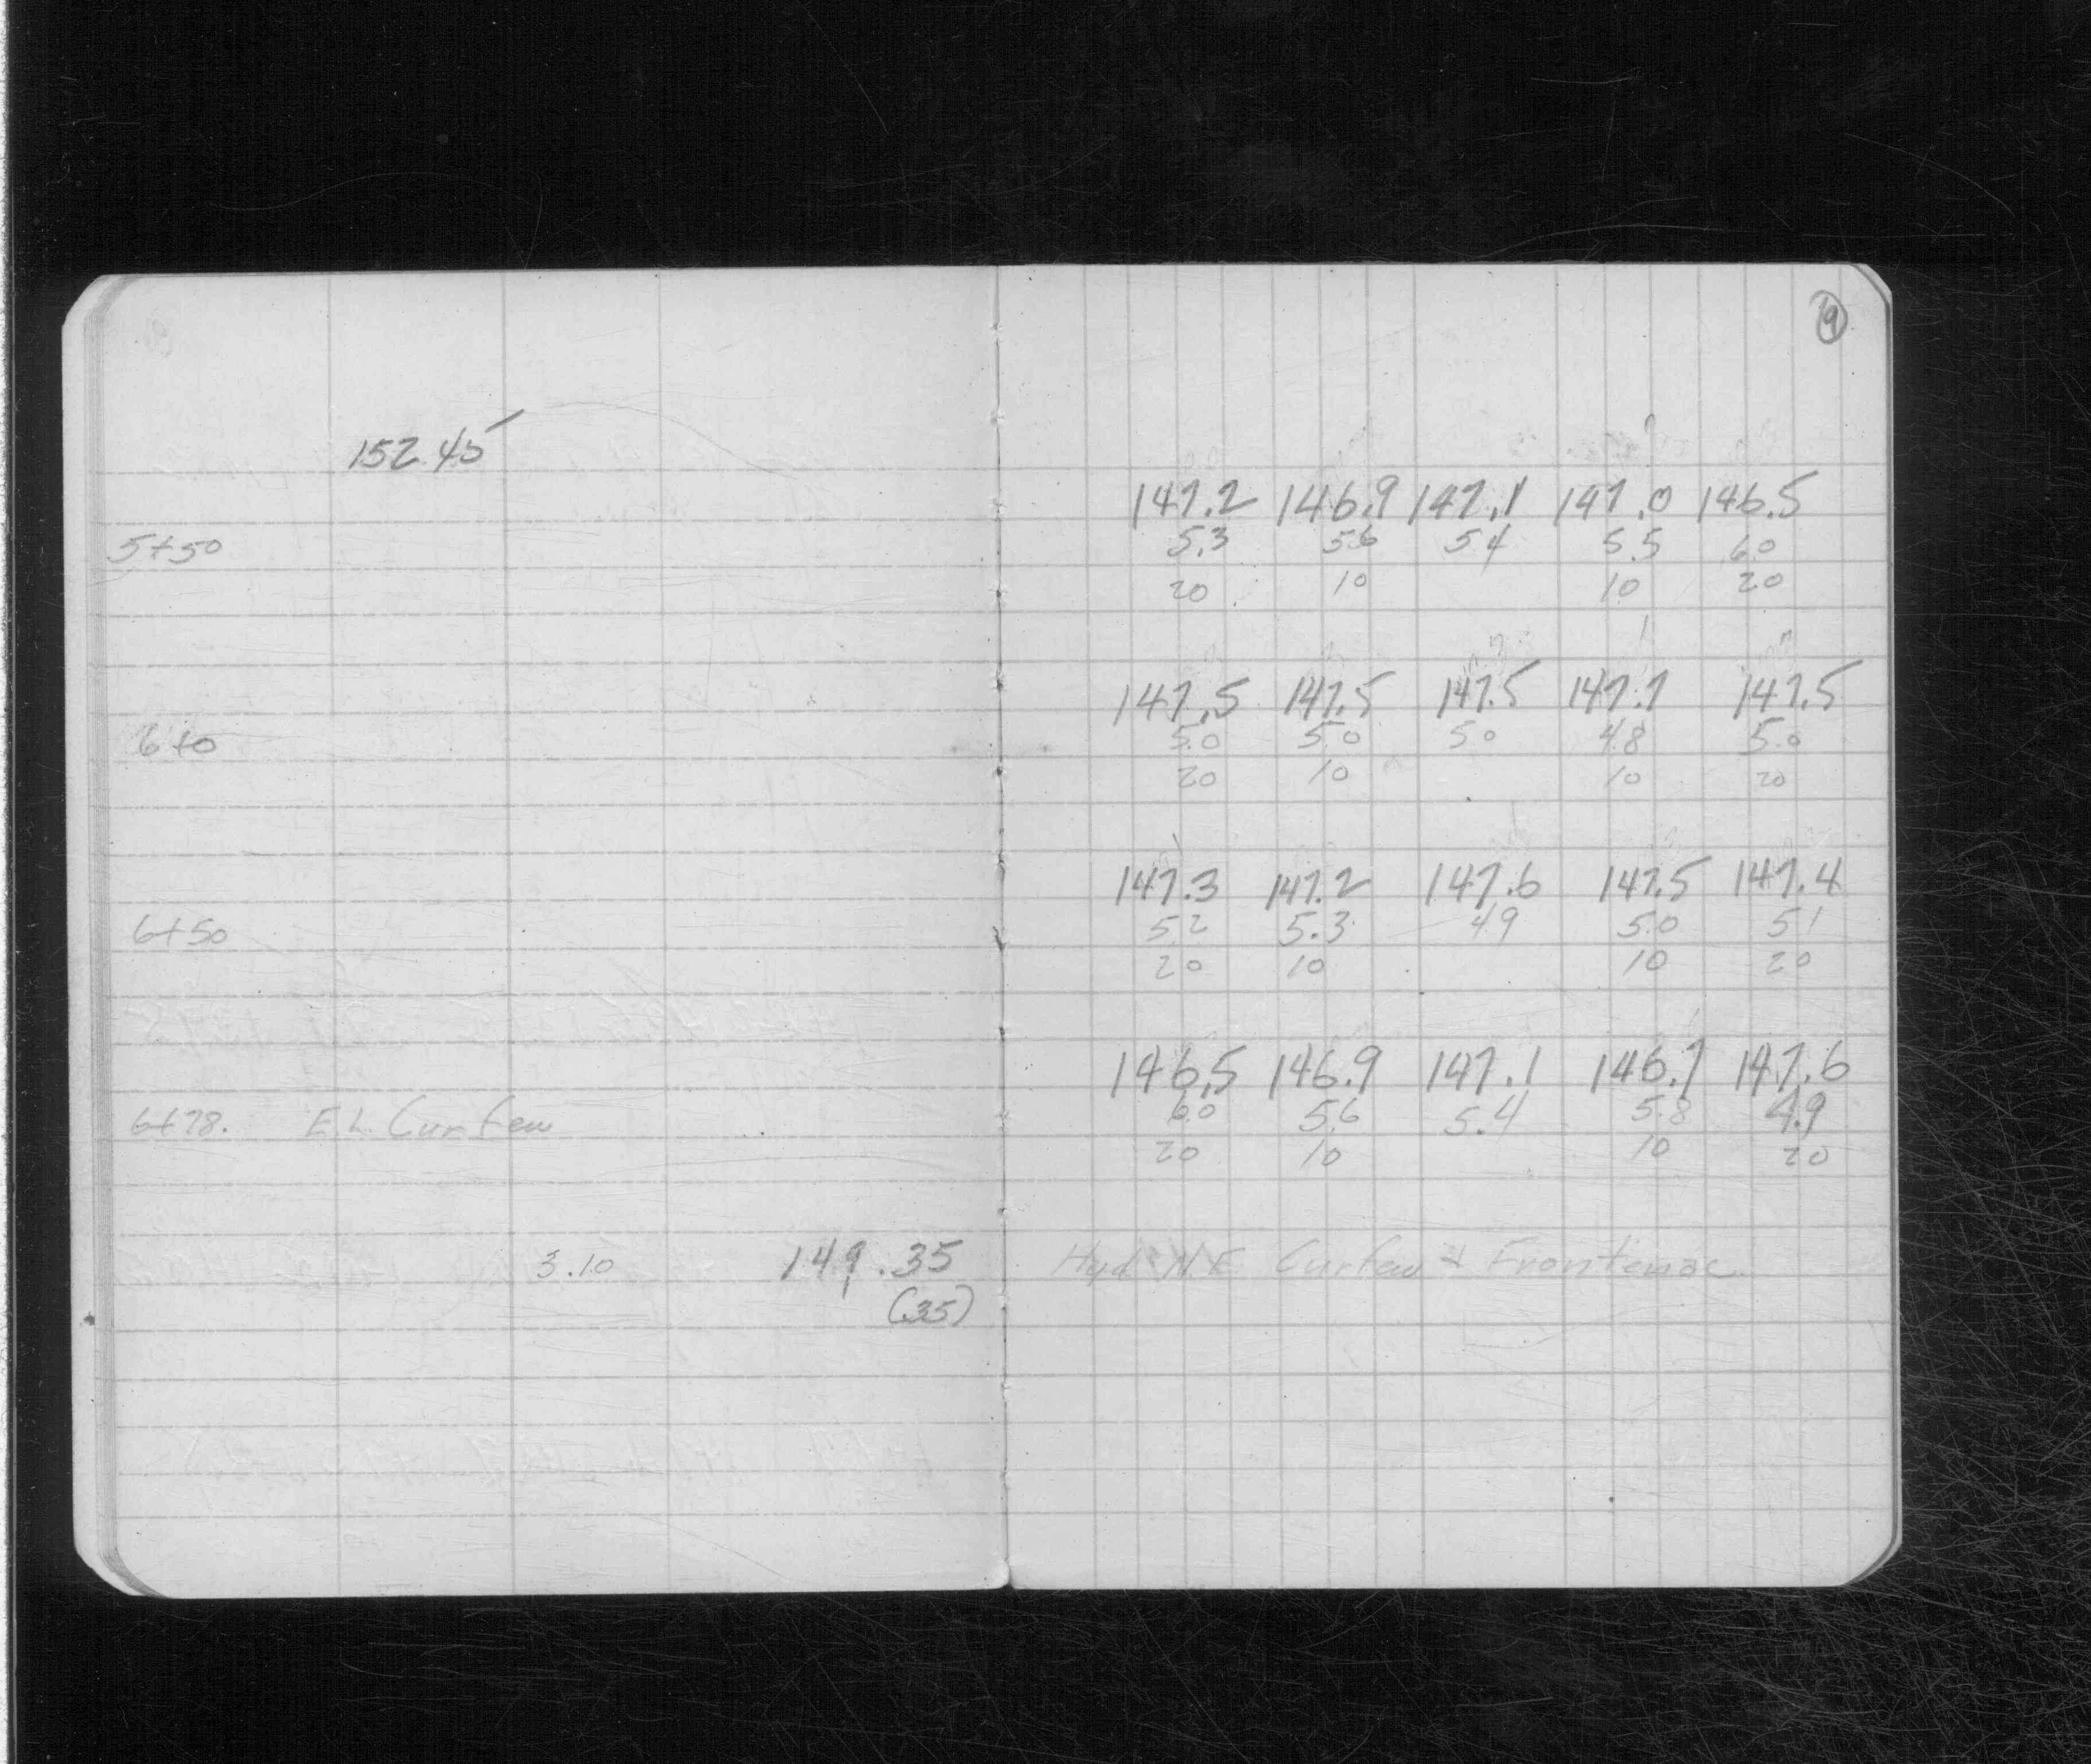 19
152.45
147.2 146.9 147.1 147.0 146.5
5+50 5.3 5.6 5.4 5.5 6.0
20 10 10 20
147.5 147.5 147.5 147.7 147.5
6+0 5.0 5.0 5.0 4.8 5.0
20 10 10 20
147.3 147.2 147.6 147.5 147.4
6+50 5.2 5.3 4.9 5.0 5.1
20 10 10 20
146.5 146.9 147.1 146.7 147.6
6+78. E.L. Curfew 6.0 5.6 5.4 5.8 4.9
20 10 10 20
3.10 149.35 Hyd N.E. Curfew + Frontenac
(.35)